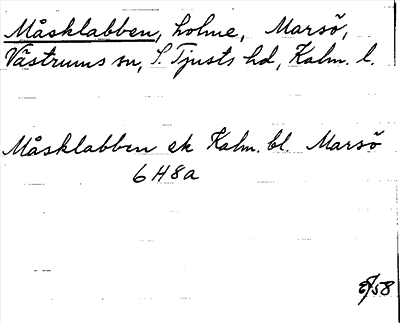 Måsklabben, holme, Marsö,
Västrums sn, S. Tjusts hd, Kalm. l.
Måsklabben ek Kalm. bl. Marsö
6H8a
58